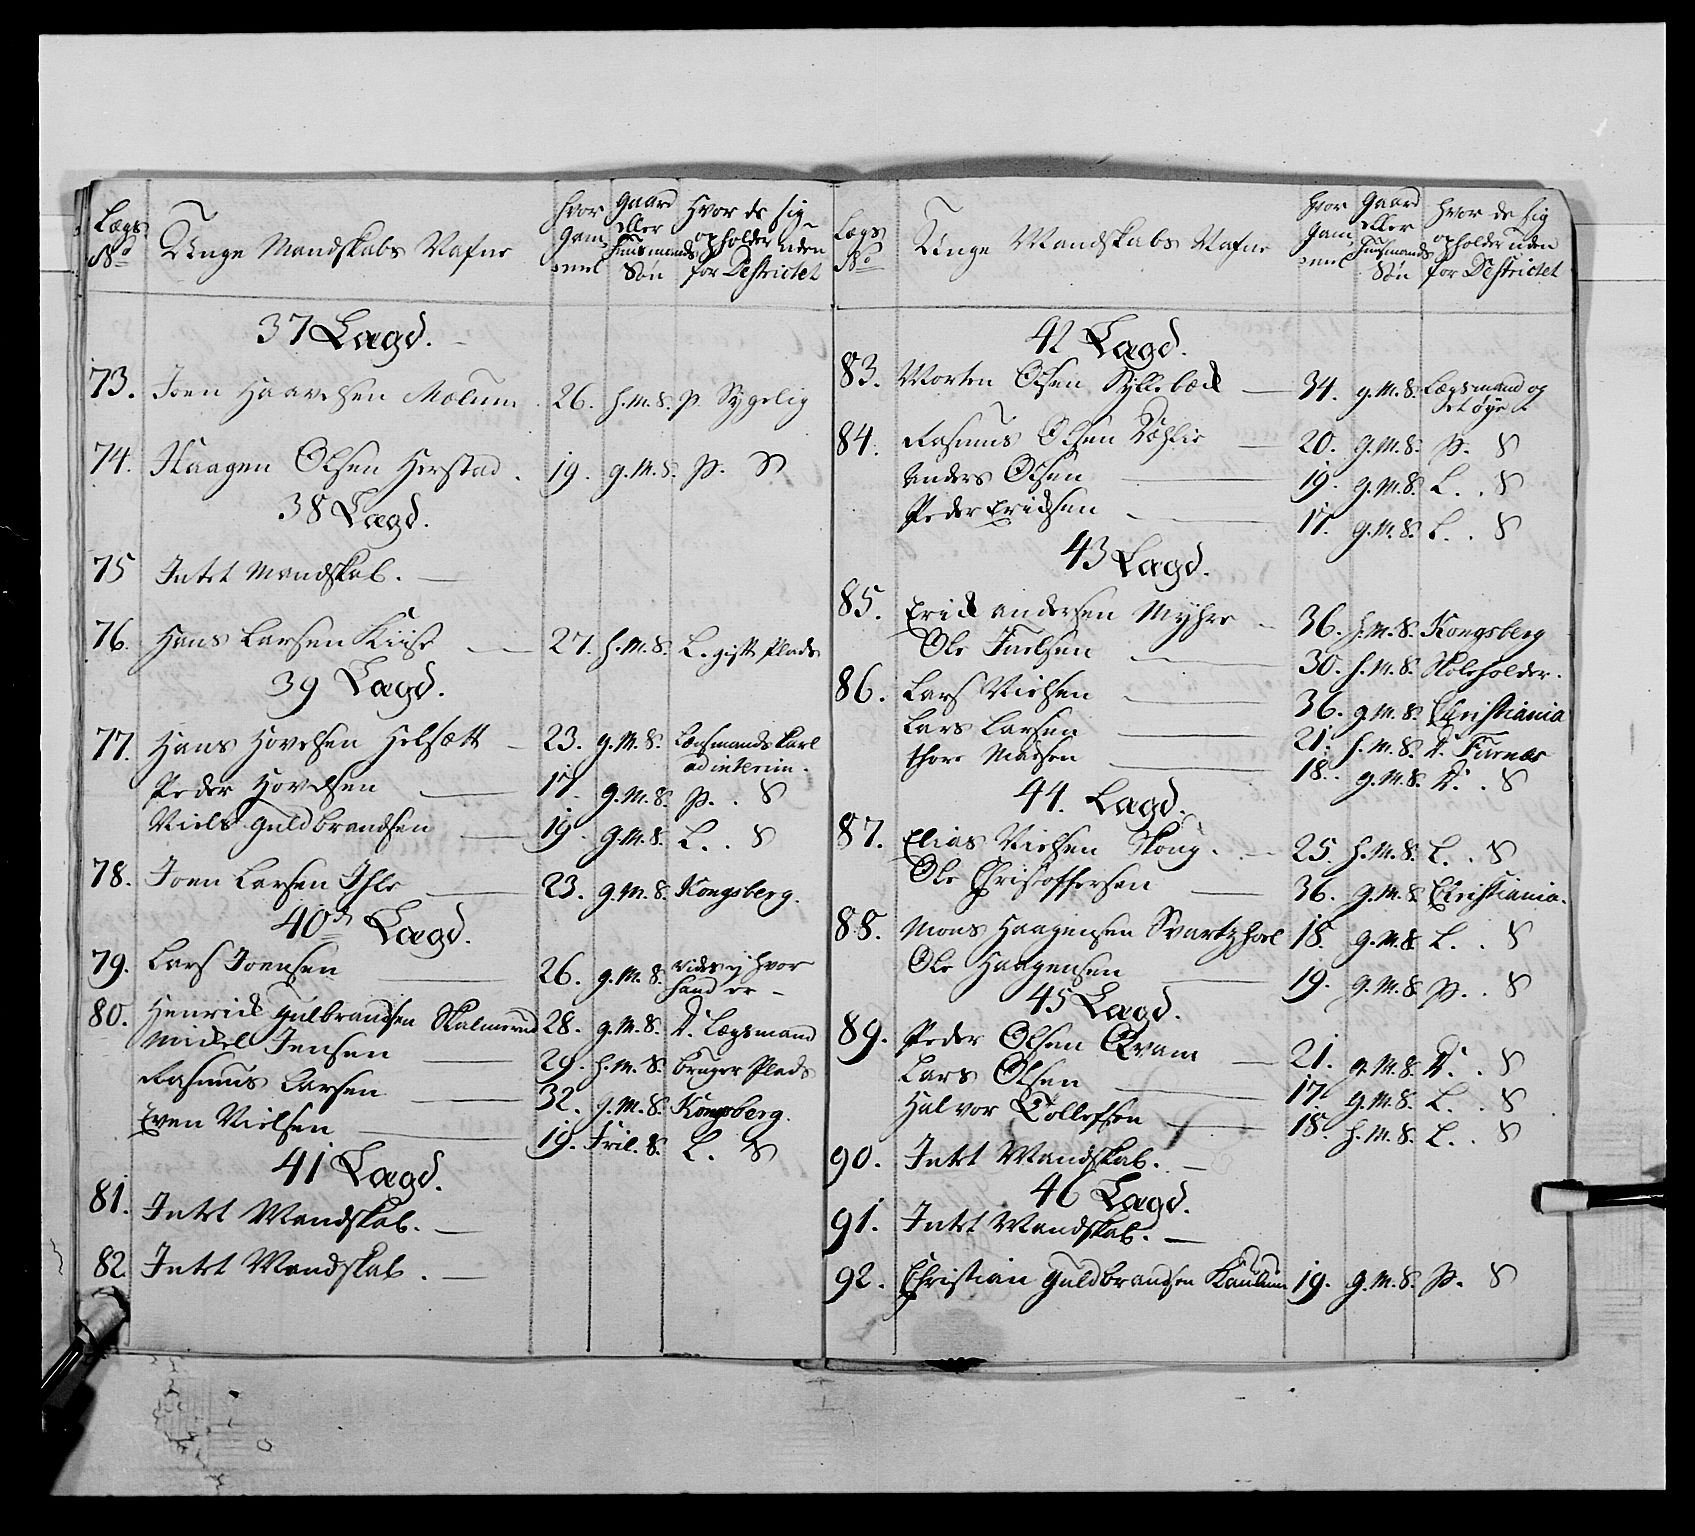 Lægs No
Unge Mandskabs Nafne
hvor Gam_mel
Gaard eller Huusmands Søn
Hvor de sig opholder uden for Destrictet
37 Lægd.
73. Joen Haavelsen Molum 26. h.M.S. P. Sygelig
74. Haagen Olsen Herstad. 19. g.M.S. P. S
38 Lægd.
75 Intet Mandskab.
76. Hans Larsen Kiise 27. h.M.S. L. gift Plads
39 Lægd.
77. Hans Hovelsen Helsætt 23. g.M.S. Lensmands karl ad interim.
Peder Hovelsen 17 g.M.S. P. S
Niels Guldbrandsen 19. g.M.S. L. S
78. Joen Larsen Ihle 23. g.M.S. Kongsberg.
40de Lægd.
79. Lars Joensen 26. g.M.S. vides ej hvor hand er
80. Henrick Gulbrandsen Skalmerud 28. g.M.S. D. Lægsmand
Mickel Jensen 29. h.M.S. bruger Plads
Rasmus Larsen 32. g.M.S. Kongsberg.
Even Nielsen 19. Fril. S. L. S
41 Lægd.
81. Intet Mandskab.
82 Intet Mandskab.
Lægs No
Unge Mandskabs Nafne
hvor Gam_mel
Gaard eller Huusmands Søn
hvor de sig opholder uden for Destrictet
42 Lægd.
83. Morten Olsen Syllebæck 34. g.M.S. Lægsmand og
84. Rasmus Olsen 20. g.M.S. P. S
Anders Olsen 19. g.M.S. L. S
Peder Erichsen 17. g.M.S. L. S
43 Lægd.
85. Erick Andersen Myhre 36. h.M.S. Kongsberg
Ole 30. h.M.S. Skoleholder.
86. Lars Nielsen 36. g.M.S. Christiania
Lars Larsen 21. h.M.S. D. Furnæs
Thore Madsen 18. g.M.S. D. S
44. Lægd.
87. Elias Nielsen Skoug. 25. h.M.S. L. S
Ole Christoffersen 36. g.M.S. Christiania.
88. Mons Haagensen 18. g.M.S. L. S
Ole Haagensen 19. g.M.S. P. S
45 Lægd.
89. Peder Olsen Qvam 21. g.M.S. D. S
Lars Olsen 17 g.M.S. L. S
Halvor Tollefsen 18. h.M.S. L. S
90. Intet Mandskab.
46 Lægd.
91. Intet Mandskab.
92. Christian Guldbrandsen Kaulum 19. g.M.S. P. S